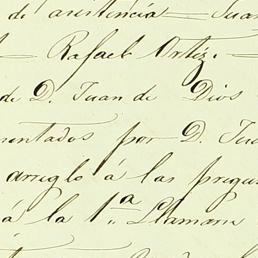 de asistencia = Juan
= Rafael Ortiz. =
de D. Juan de Dios
mentados por D. Jua
arreglo á las pregun
á la 1ª Llamaron